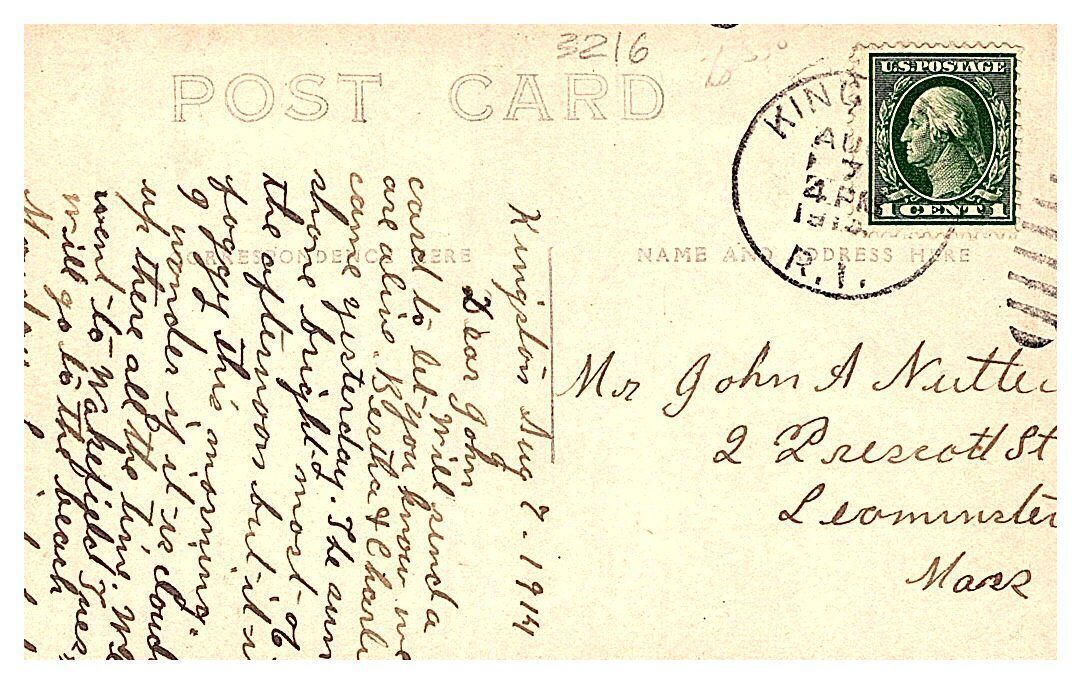 3216
POST CARD
U.S. POSTAGE
1 CENT 1
KING
AU
7
4 PM
R.I.
CORRESPONDENCE HERE
NAME AND ADDRESS HERE
Mr John A Nutte
2 Prescott St
Leominster
Mass
Kingston Aug 7. 1914
Dear John
I will send a
card to let you know we
are alive. Bertha & Charli
came yesterday. The sun
shone bright most of
the afternoon but it
foggy this morning.
I wonder if it is cloud
up there all the time. We
went to Wakefield Tues.
will go to the beach